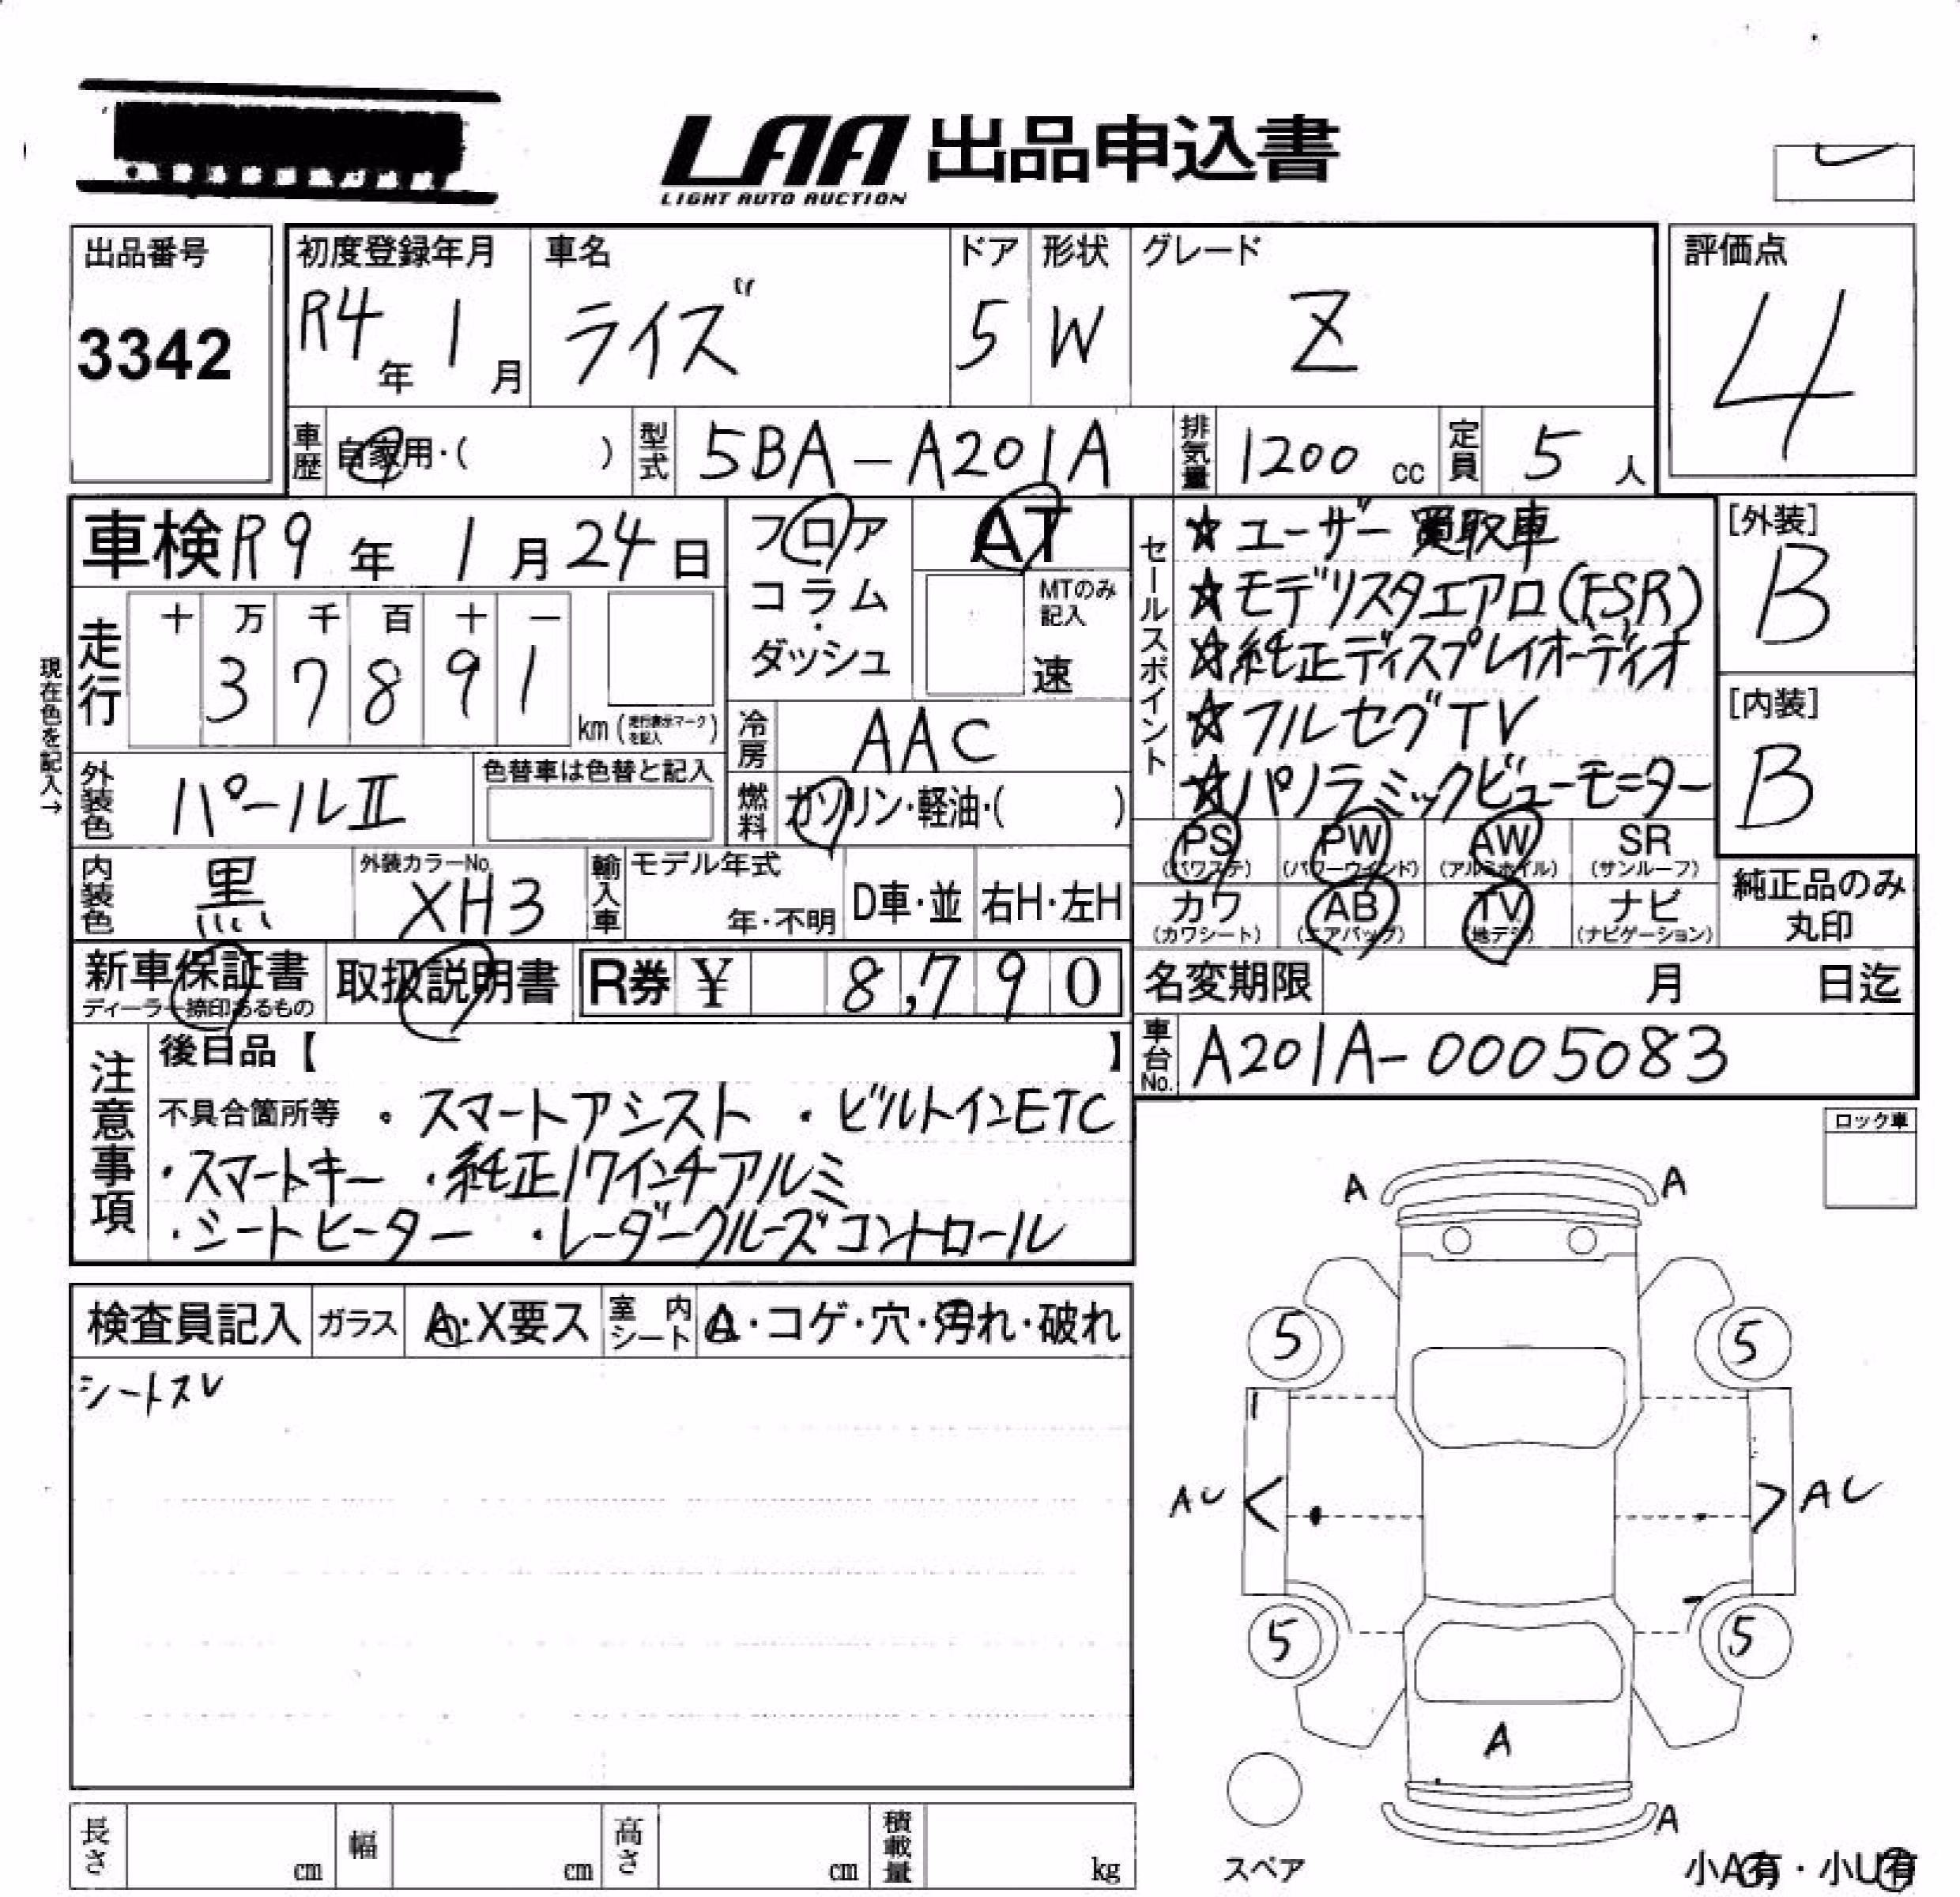 LAA 出品申込書
LIGHT AUTO AUCTION
出品番号
3342
初度登録年月
R4年 1月
車名
ライズ
ドア
5
形状
W
グレード
Z
評価点
4
車歴 自家用・( )
型式 5BA-A201A
排気量 1200 cc
定員 5人
車検 R9年 1月 24日
フロア
コラム
・
ダッシュ
AT
MTのみ記入
速
セールスポイント
☆ユーザー買取車
☆モデリスタエアロ(FSR)
☆純正ディスプレイオーディオ
☆フルセグTV
☆パノラミックビューモニター
[外装]
B
[内装]
B
現在色を記入→
走行
十 万 千 百 十 一
3 7 8 9 1
km (走行表示マークを記入)
冷房 AAC
外装色 パールⅡ
色替車は色替と記入
燃料 ガソリン・軽油・( )
PS (パワステ) PW (パワーウインド) AW (アルミホイル) SR (サンルーフ)
カワ (カワシート) AB (エアバッグ) TV (地デジ) ナビ (ナビゲーション)
純正品のみ丸印
内装色 黒
外装カラーNo.
XH3
輸入車
モデル年式
年・不明
D車・並
右H・左H
新車保証書
ディーラー捺印あるもの
取扱説明書
R券 ¥ 8,790
名変期限 月 日迄
車台No. A201A-0005083
注意事項
後日品【 】
不具合箇所等 ・スマートアシスト ・ビルトインETC
・スマートキー ・純正17インチアルミ
・シートヒーター ・レーダークルーズコントロール
ロック車
検査員記入 ガラス A・X要ス 室内シート A・コゲ・穴・汚れ・破れ
シートスレ
A A
5 5
AU AU
5 5
A
A
スペア
小A有・小U有
長さ cm 幅 cm 高さ cm 積載量 kg